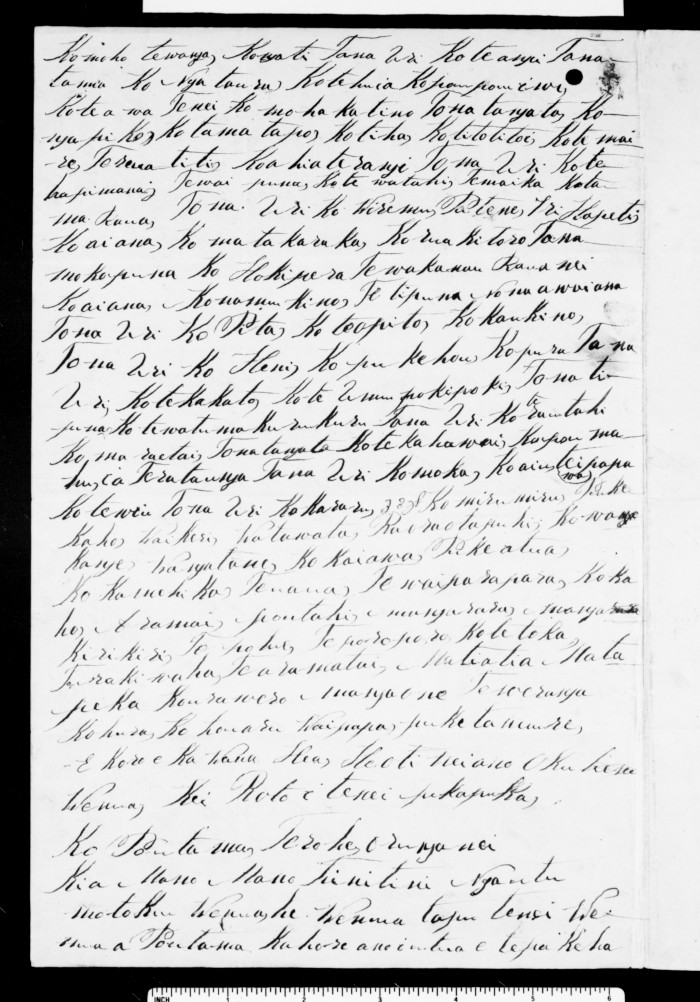 Komoho tewanga Kowati Tana Uri Koteangi Tana
tamia Ko Nga taura, Kotehuia Kopaupau iwi,
Kotea wa Tenei Ko mohakatino Tona tangata, Ko
nga piko, Kotamatapo, Kotiha, Kotitotitoi, Kote mai
re, Terenatiti, Koahiaterangi Tona Uri Kote
hapimana, Tewai puna, Kote watahi, Temaika Kota
ma Raua, Tona Uri Ko Wiremu, Patene, Iri Hapeti,
Koaiana, Ko matakaraka, Koruakitoro, Tana
mokopuna Ko Hokipera Tewakanau Raua nei
Koaiana, Konamukino, Te tipuna Nonaawaiana
Tona Uri Ko Pita, Koteapito, Kokaukino,
Tona Uri Ko Heni, Ko pukehou, Kopura Tana
Uri, Kotekakato, Kote Umupokipoki, Tona ti-
puna Kotewatumakurukuru Tana Uri Korautahi
Ko maraetai, Tonatangata Kotekahawai, Kopou ma-
hu, ia Terataunga Tana Uri Komoka, Koaiu teipapa
Kotewiu Tona Uri Kokararu, Komirumiru,
Kaho, Waikeri, Watawata, Ko wanga
Kange, Wangatane, Kokaiawa, Pukeatua,
Ko Kamehika, Tenana, Tewaiparapara, Koka
ho, Aramai, poutahi, mangarara, manga
Kirikiri, Te pohu, Teporoporo, Kotetoka,
Turakiwaha, Tearamatai, Matiatia Mata
peka Kourawero mangaone Teweranga
Kohura, Ko houaru Waipapa, puketamure,
E Koro e Ka Wana Hea, Heoti neiano Oku
Wenua, Kei Roto i tenei pukapuka,
Ko Poutama, Terohe, orunga nei
Kia Mano Mano Tinitini Ngautu
mo toku Wenua, he Wenua tapu tenei We-
nua a Poutama Kahore ano i utua e tepakeha